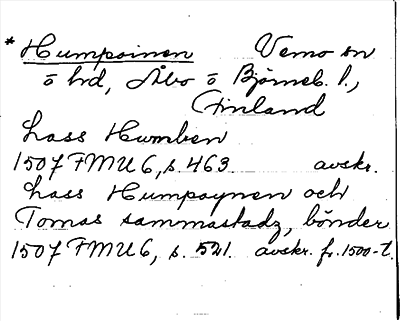 * Humpoinen Vemo sn
ö hrd, Åbo ö Björneb. l.,
Finland
Lass Humben
1507 FMU 6, s. 463. avskr.
Lass Humpoynen och
Tomas sammastadz, bönder
1507 FMU 6, s. 521. avskr. fr. 1500-t.